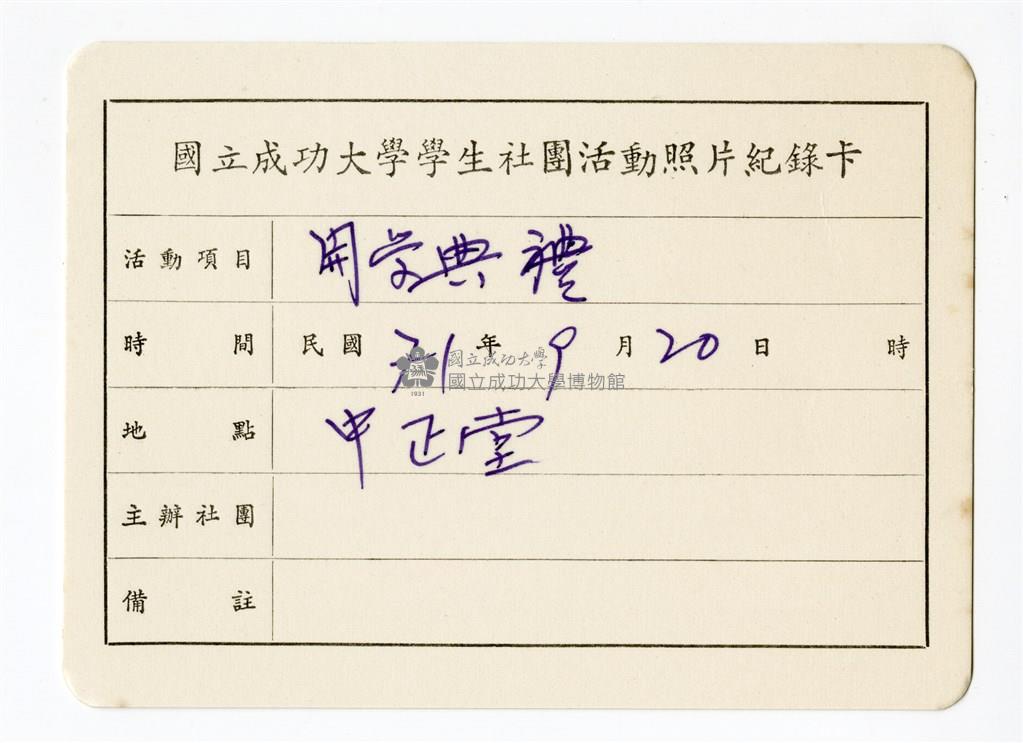 國立成功大學學生社團活動照片紀錄卡
活動項目 開学典禮
時間 民國 71 年 9 月 20 日 時
地點 中正堂
主辦社團
備註
國立成功大學
國立成功大學博物館
1931